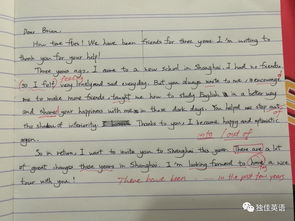 Dear Brian,
How time flies! We have been friends for three years. I'm writing to
thank you for your help!
Three years ago, I came to a new school in Shanghai. I had no friends
(so I felt) very lonely and sad everyday. But you always wrote to me, encouraged
feeling
me to make more friends, taught me how to study English in a better way
and shared your happiness with me in those dark days. You helped me step out
the shadow of inferiority. Thanks to you, I became happy and optimistic
again.
into / out of
So in return, I want to invite you to Shanghai this year. There are a lot
of great changes these years in Shanghai. I'm looking forward to have a nice
tour with you!
There have been ... in the past few years
独佳英语